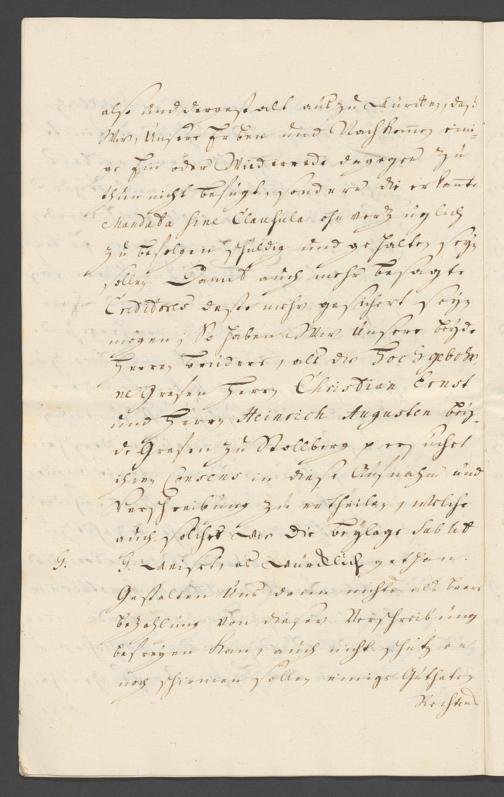 also und dergestalt aus zu Würcken, daß
Wir, Unsere Erben und Nachkommen eini-
ge Ein oder Wiederrede dagegen zu
thun nicht befugt, sondern die erkante
Mandata sine Clausula ohnverzüglich
zu befolgen schuldig und gehalten seyn
sollen Damit auch mehr besagte
Creditores desto mehr gesichert seyn
mögen, So haben Wir Unsere beyde
Herren Brüdere, als die Hochgebohr
ne Grafen Herrn Christian Ernst
und Herrn Heinrich Augusten bey-
de Grafen zu Stollberg p ersuchet
ihren Consens in diese Aufnahm und
Verschreibung zu ertheilen, welche
auch solches wie die beylage sub lit
G. G. weiset, es Würcklich gethan.
Gestalten Uns denn nichts als baare
bezahlung von dieser Verschreibung
befreyen kan, auch nicht schützen
noch schirmen sollen einige Guthaten
Rechten